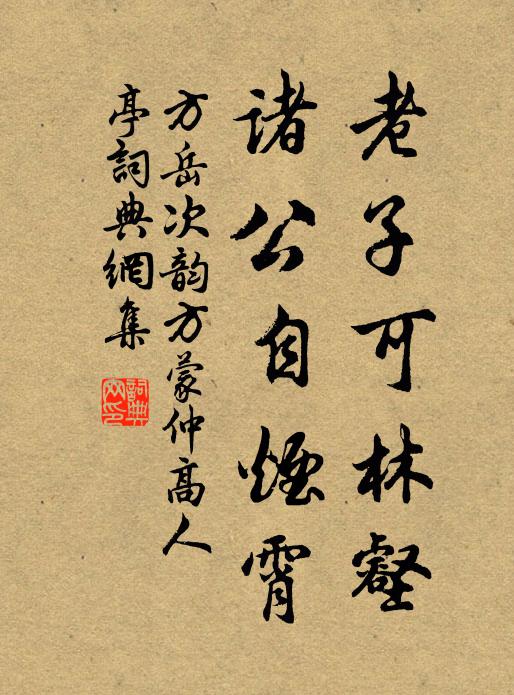 老子可林壑
諸公自煙霄
方岳次韵方蒙仲高人
亭詞典網集
詞典